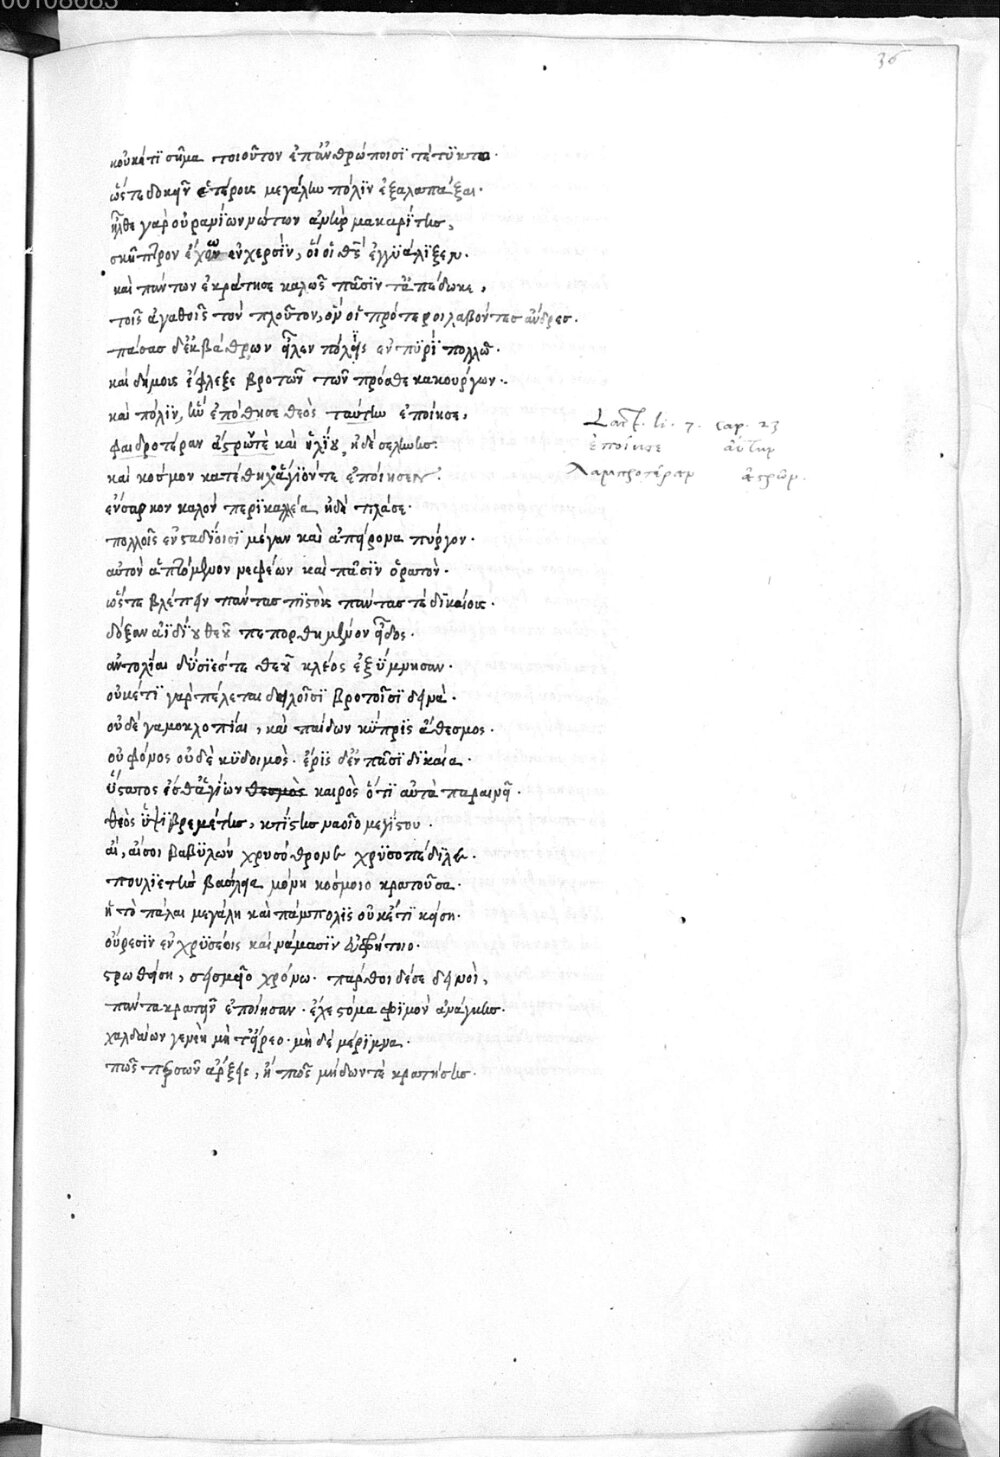 00108685
36
κοὐκέτϊ σῆμα τοιοῦτον ἐπἀνθρώποισϊ τέτϋκται·
ὥστε δοκεῖν ἑτέροις μεγάλην πόλϊν ἐξαλαπάξαι·
ἦλθε γὰρ οὐρανΐων νώτων ἀνὴρ μακαρίτης,
σκῆπτρον ἔχων ἐν χερσὶν, ὅ οἱ θεὸς ἐγγυάλϊξεν·
καὶ πάντων ἐκράτησε καλῶς πᾶσϊν τἀπέδωκε,
τοῖς ἀγαθοῖς τὸν πλοῦτον, ὃν οἱ πρότεροι λαβόντες ἄνδρες·
πάσας δἐκ βάθρων εἷλεν πόλεις ἐν πϋρὶ πολλῶ·
καὶ δήμους ἔφλεξε βροτῶν τῶν πρόσθε κακούργων·
καὶ πόλϊν, ἣν ἐπόθησε θεὸς ταύτην ἐποίησε,
φαιδροτέραν ἄστρωντε καὶ ἡλίου, ἠδὲ σελήνης·
καὶ κόσμον κατέθηχἅγϊόντε ἐποίησεν·
ἔνσαρκον καλὸν περϊκαλλέα ἠδὲ πλάσε·
πολλοῖς ἐν σταδίοισϊ μέγαν καὶ ἀπείρονα πύργον·
αὐτὸν ἁπτόμενον νεφέων καὶ πᾶσϊν ὁρατόν·
ὥστε βλέπειν πάντας πιστοὺς πάντας τε δϊκαίους·
δόξαν ἀϊδΐου θεοῦ πεπορθημένον εἶδος·
ἀντολίαι δύσϊές τε θεοῦ κλέος ἐξύμνησαν·
οὐκέτϊ γὰρ πέλεται δειλοῖσϊ βροτοῖσϊ δεινά·
οὐδὲ γαμοκλοπίαι, καὶ παίδων κύπρϊς ἄθεσμος·
οὐ φόνος οὐδὲ κϋδοιμὸς· ἔρϊς δἐν πᾶσϊ δϊκαία·
ὕστατος ἔσθἁγίων θεσμὸς καιρὸς ὅτϊ αὐτὰ περαινεῖ·
θεὸς ὑψϊβρεμέτης, κτίστης ναοῖο μεγίστου·
αἴ, αἴσοι βαβϋλὼν χρυσόθρονε χρϋσοπέδϊλε·
πουλϊετὴς βασίλεια μόνη κόσμοιο κρατοῦσα·
ἣ τὸ πάλαι μεγάλη καὶ πάμπολϊς οὐκέτϊ κείση·
οὔρεσϊν ἐν χρϋσέοις καὶ νάμασϊν εὐφρήταο·
στρωθείση, σεισμεῖο χρόνω· πάρθοι δέ σε δεινοὶ,
πάντα κρατεῖν ἐποίησαν· ἔχε στόμα φϊμὸν ἄναγνες·
χαλδαίων γενεὴ μὴ τείρεο· μὴ δὲ μέρϊμνα·
πῶς περσῶν ἄρξεις, ἢ πῶς μήδωντε κρατήσεις·
Lact. li. 7. cap. 23
ἐποίησε αὐτὴν
λαμπροτέραν ἄστρων.